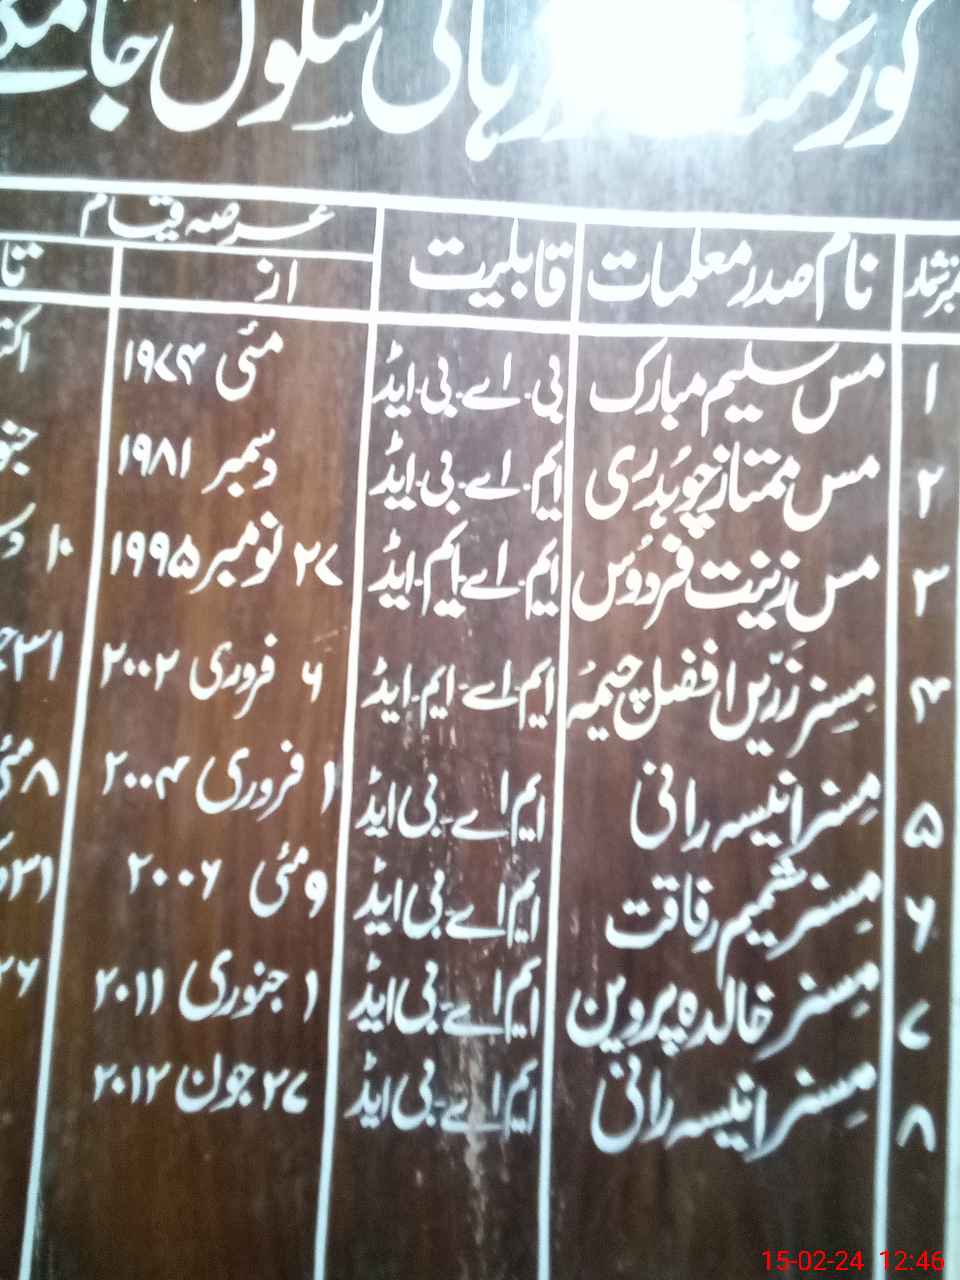 گورنمنٹ ہائی سکول جامکے
نمبر شمار نام صدر معلمات قابلیت عرصہ قیام
از تا
۱ مس سلیم مبارک بی۔اے۔بی۔ایڈ مئی ۱۹۷۴
۲ مس ممتاز چوہدری ایم۔اے۔بی۔ایڈ دسمبر ۱۹۸۱
۳ مس زینت فردوس ایم۔اے۔ایم۔ایڈ ۲۷ نومبر ۱۹۹۵ ۱۰
۴ مسز زریں افضل چیمہ ایم۔اے۔ایم۔ایڈ ۶ فروری ۲۰۰۲ ۳۱
۵ مسز انیسہ رانی ایم اے۔بی ایڈ ۱ فروری ۲۰۰۴ ۸ مئی
۶ مسز شمیم رفاقت ایم اے۔بی ایڈ ۹ مئی ۲۰۰۶ ۳۱
۷ مسز خالدہ پروین ایم اے۔بی ایڈ ۱ جنوری ۲۰۱۱ ۲۶
۸ مسز انیسہ رانی ایم اے۔بی ایڈ ۲۷ جون ۲۰۱۲
15-02-24 12:46